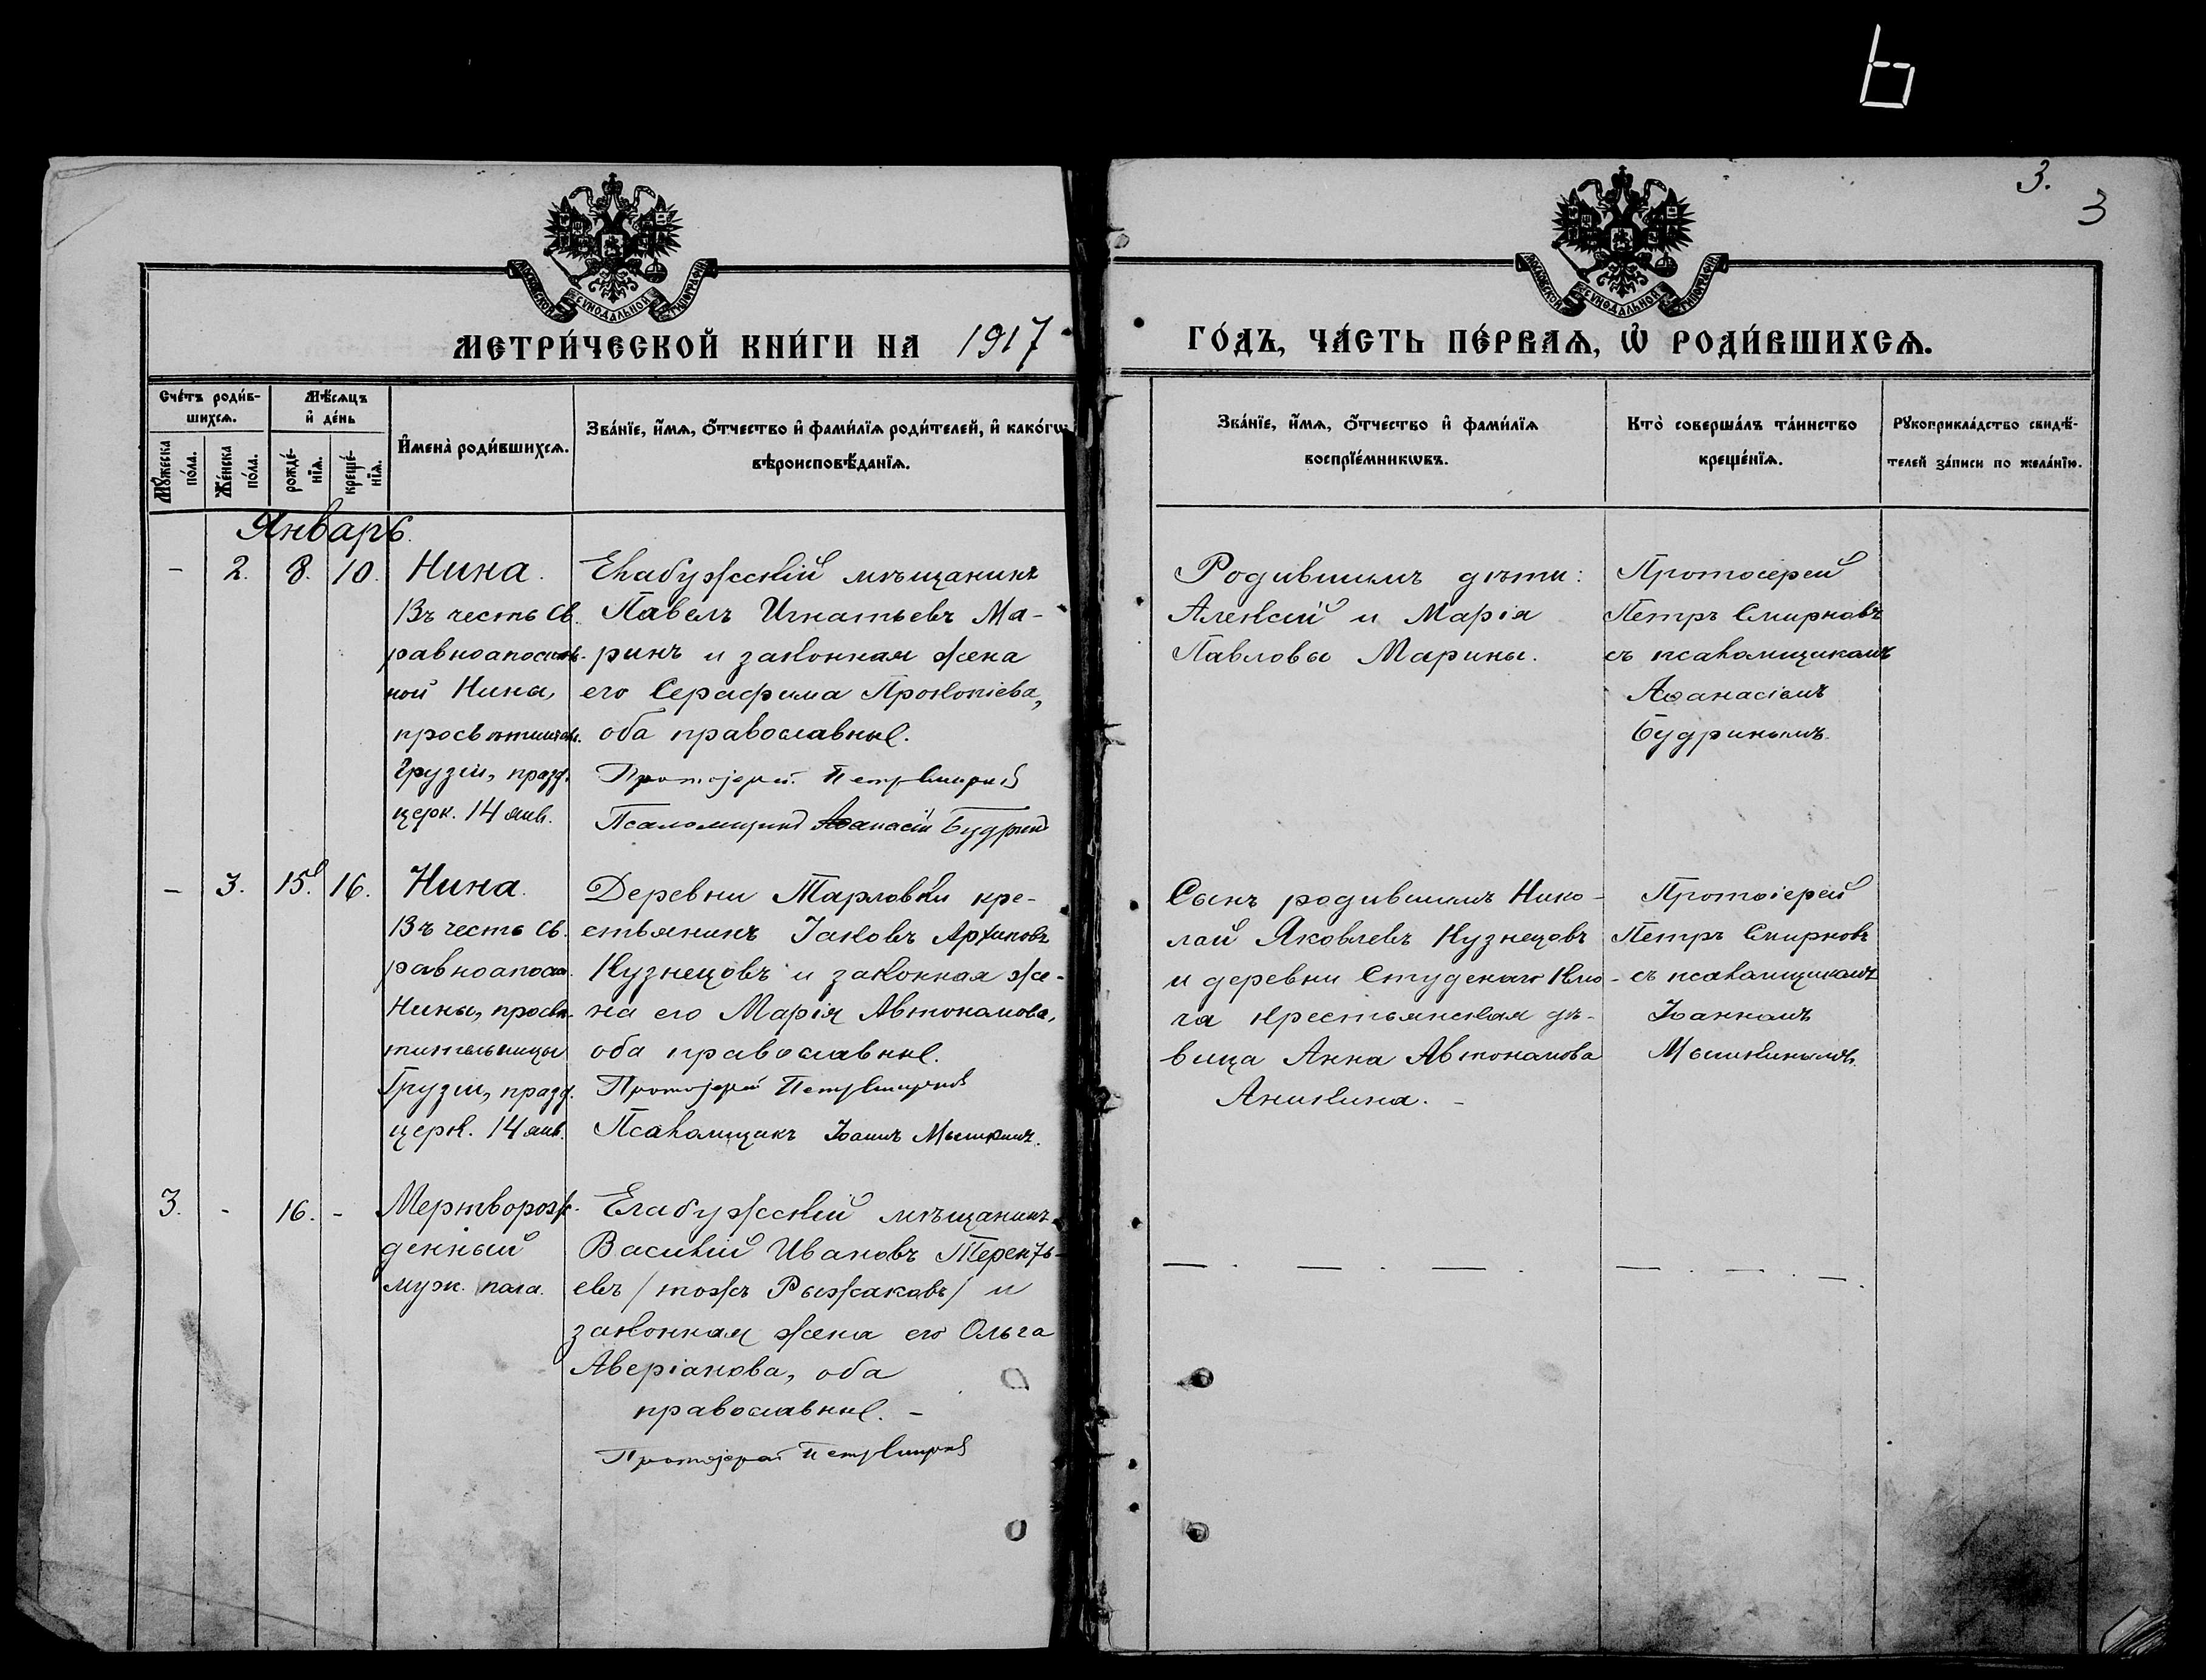 6
3.
3
МОСКОВСКОЙ СѴНОДАЛЬНОЙ ТИПОГРАФІИ
МОСКОВСКОЙ СѴНОДАЛЬНОЙ ТИПОГРАФІИ
МЕТРИ́ЧЕСКОЙ КНИ́ГИ НА 1917
ГО́ДЪ, ЧА́СТЬ ПЕ́РВАѦ, Ѡ҆ РОДИ́ВШИХСѦ.
Сче́тъ роди́в-
шихсѧ.
Мѣ́сѧцъ
и҆ де́нь
Мꙋ́жеска
по́ла.
Же́нска
по́ла.
рожде́-
нїѧ.
креще́-
нїѧ.
И҆мена̀ роди́вшихсѧ.
Зва́нїе, и҆́мѧ, ѻ҆́тчество и҆ фами́лїѧ роди́телей, и҆ како́гѡ
вѣроисповѣ́данїѧ.
Зва́нїе, и҆́мѧ, ѻ҆́тчество и҆ фами́лїѧ
воспрїе́мникѡвъ.
Кто̀ соверша́лъ та́инство
креще́нїѧ.
Рꙋкоприкла́дство свидѣ́-
телей за́писи по жела́нїю.
Январь.
- 2. 8. 10.
Нина.
Въ честь св.
равноапостоль-
ной Нины,
просвѣтител.
Грузіи, празд.
церк. 14 янв.
Елабужскій мѣщанинъ
Павелъ Игнатьевъ Ма-
ринъ и законная жена
его Серафима Прокопіева,
оба православные.
Протоіерей Петръ Смирновъ
Псаломщикъ Аѳанасій Будринъ
Родившимъ дѣти:
Алексій и Марія
Павловы Марины.
Протоіерей
Петръ Смирновъ
съ псаломщикомъ
Аѳанасіемъ
Будринымъ.
- 3. 15. 16.
Нина.
Въ честь св.
равноапост.
Нины, просвѣ-
тительницы
Грузіи, празд.
церк. 14 янв.
Деревни Тарловки кре-
стьянинъ Іаковъ Архиповъ
Кузнецовъ и законная же-
на его Марія Автономова,
оба православные.
Протоіерей Петръ Смирновъ
Псаломщикъ Іоаннъ Мышкинъ.
Сынъ родившимъ Нико-
лай Яковлевъ Кузнецовъ
и деревни Студенаго Клю-
ча крестьянская дѣ-
вица Анна Автономова
Аникина. -
Протоіерей
Петръ Смирновъ
съ псаломщикомъ
Іоанномъ
Мышкинымъ.
3. - 16. -
Мертворож-
денный
муж. пола.
Елабужскій мѣщанинъ
Василій Ивановъ Теренть-
евъ /тожъ Рыжаковъ/ и
законная жена его Ольга
Аверіанова, оба
православные. -
Протоіерей Петръ Смирновъ